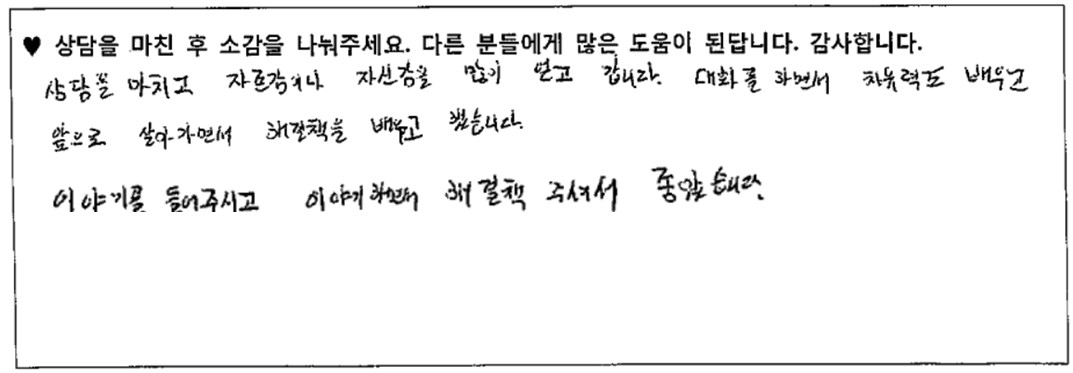 ♥ 상담을 마친 후 소감을 나눠주세요. 다른 분들에게 많은 도움이 된답니다. 감사합니다.
상담을 마치고 자존감이나 자신감을 많이 얻고 갑니다. 대화를 하면서 치유력도 배우고
앞으로 살아가면서 해결책을 배우고 갔습니다.
이야기를 들어주시고 이야기 하면서 해결책 주셔서 좋았습니다.